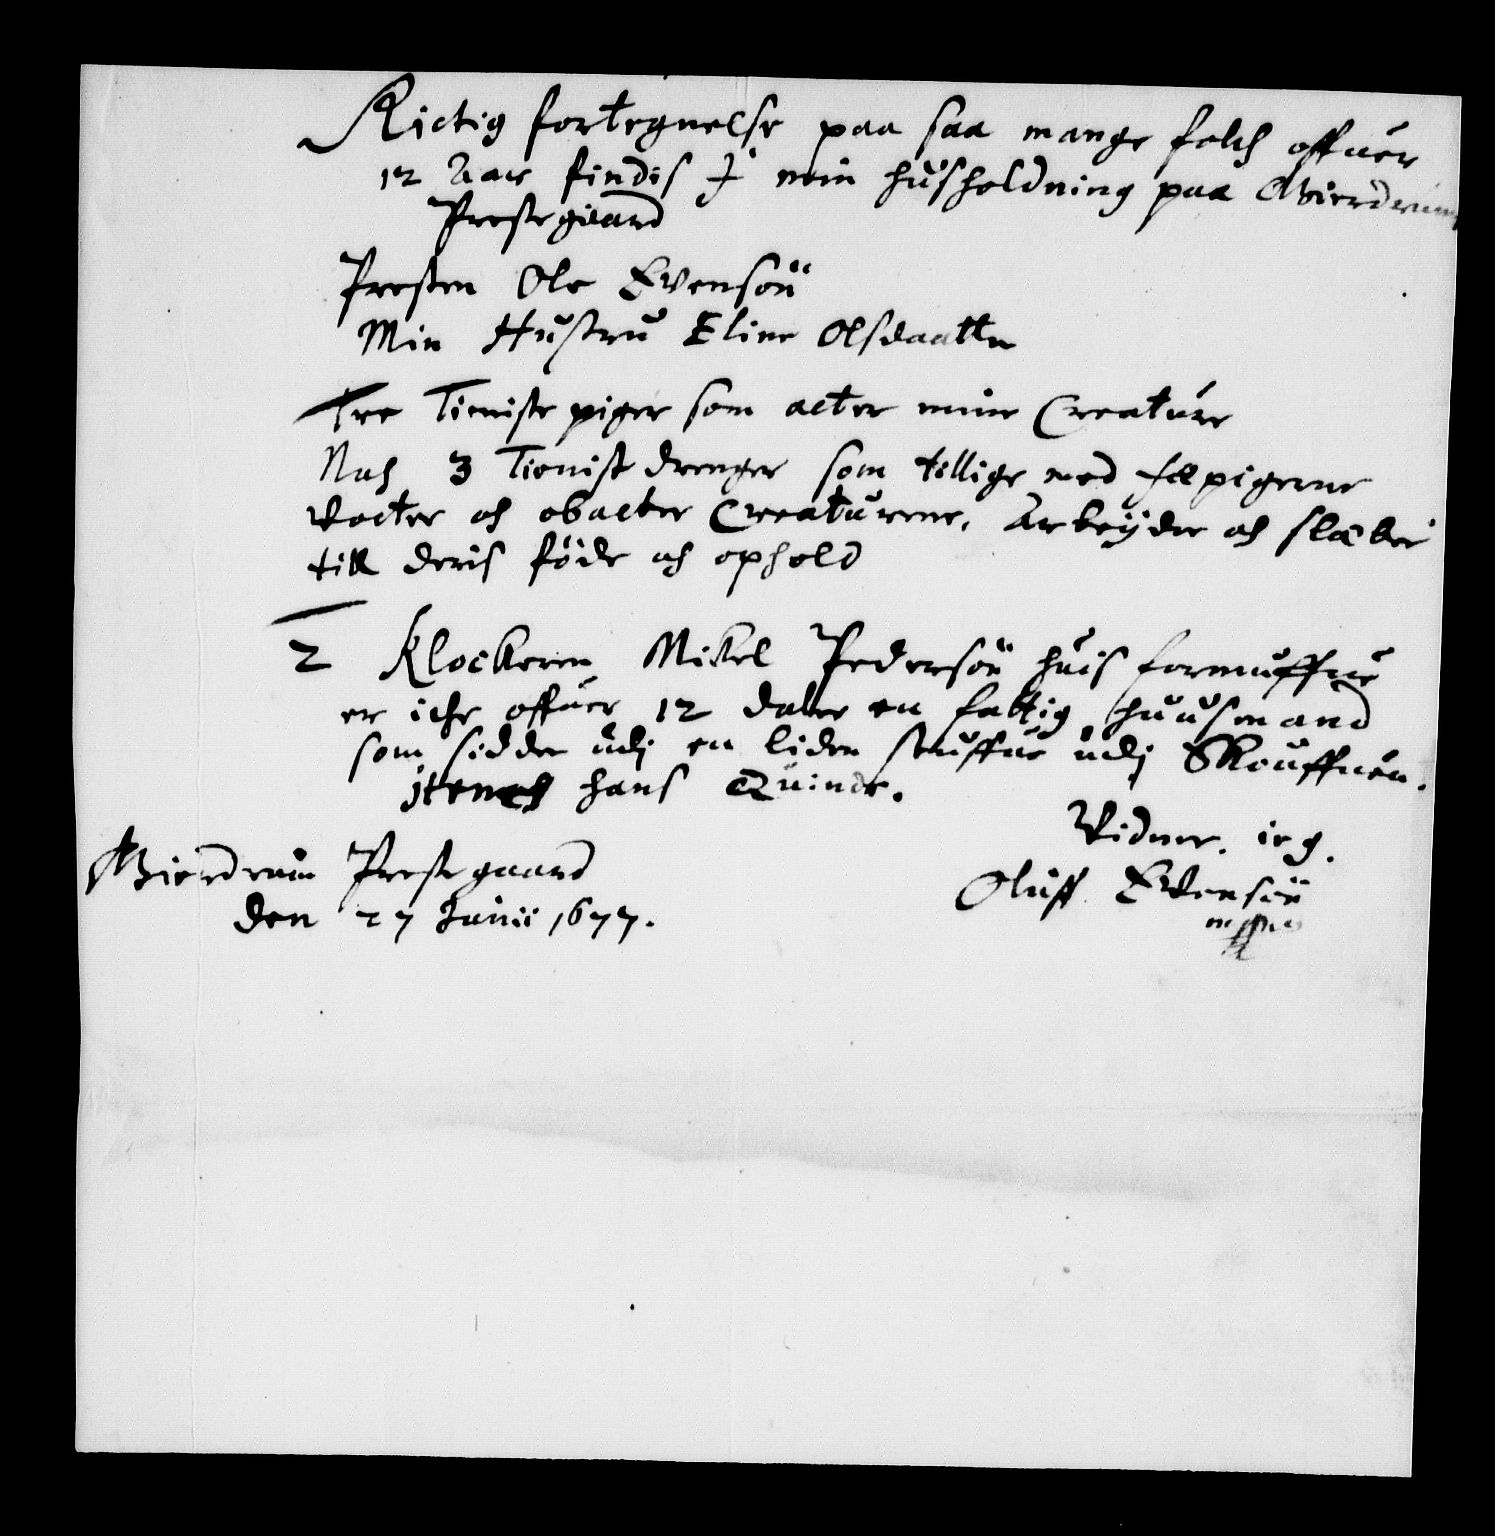 Rictig fortegnelse paa saa mange folch offuer
12 Aar findis J min husholdning paa Gierdrum
Prestegaard
Presten Ole Evensön
Min Hustru Eline Olsdaatter
Tre Tieniste piger som acter mine Creature
Nach 3 Tienist drenger som tillige med fæpigerne
Vocter och obacter Creaturene, Arbeÿder och slæber
till deris föde och ophold
2 Klockeren Mikel Pedersön huis formuffue
er iche offuer 12 daler en fattig huusmand
som sidder udj en liden stuffue udj Skouffuen.
jtem hans Quinde.
Vidner. ieg.
Gierdrum Prestegaard
Oluff Evensön
den 27 Junii 1677.